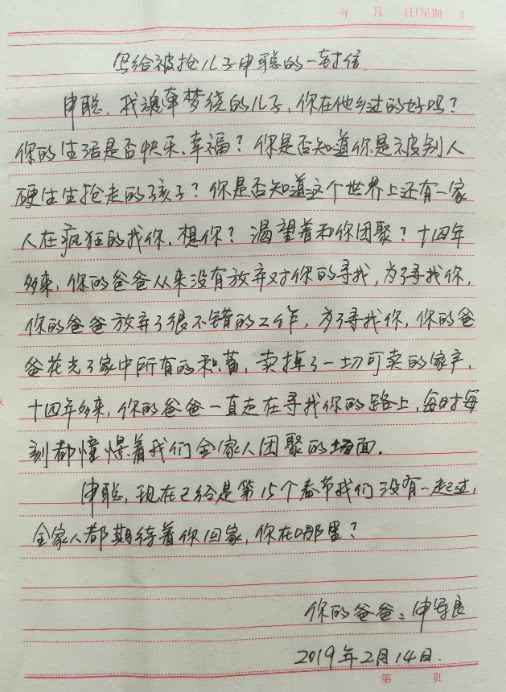 年 月 日(星期 )
写给被抢儿子申聪的一封信
申聪,我魂牵梦绕的儿子,你在他乡过的好吗?
你的生活是否快乐、幸福?你是否知道你是被别人
硬生生抢走的孩子?你是否知道这个世界上还有一家
人在疯狂的找你、想你?渴望着和你团聚?十四年
多来,你的爸爸从来没有放弃对你的寻找,为了寻找你,
你的爸爸放弃了很不错的工作,为了寻找你,你的爸
爸花光了家中所有的积蓄,卖掉了一切可卖的家产,
十四年多来,你的爸爸一直走在寻找你的路上,每时每
刻都憧憬着我们全家人团聚的场面.
申聪,现在已经是第15个春节我们没有一起过,
全家人都期待着你回家,你在哪里?
你的爸爸:申军良
2019年2月14日.
第 页